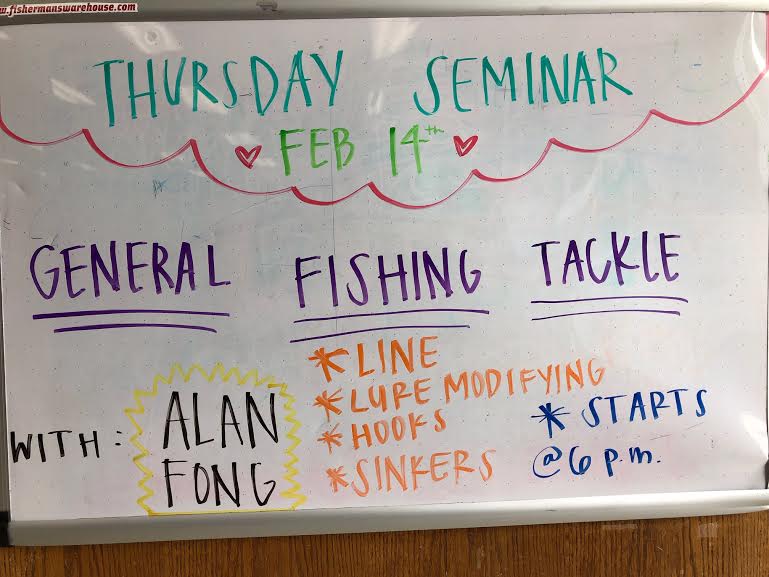 w.fishermanswarehouse.com
THURSDAY SEMINAR
FEB 14th
GENERAL FISHING TACKLE
WITH: ALAN FONG
* LINE
* LURE MODIFYING
* HOOKS
* SINKERS
* STARTS
@ 6 p.m.